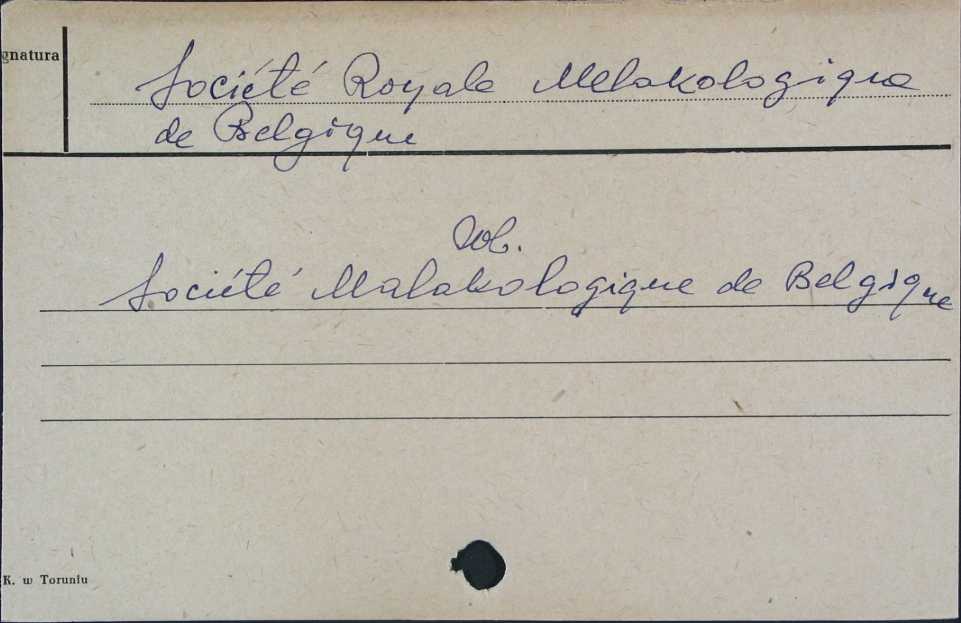 gnatura
Société Royale Melakologique
de Belgique
Zob.
Société Malakologique de Belgique
K. w Toruniu